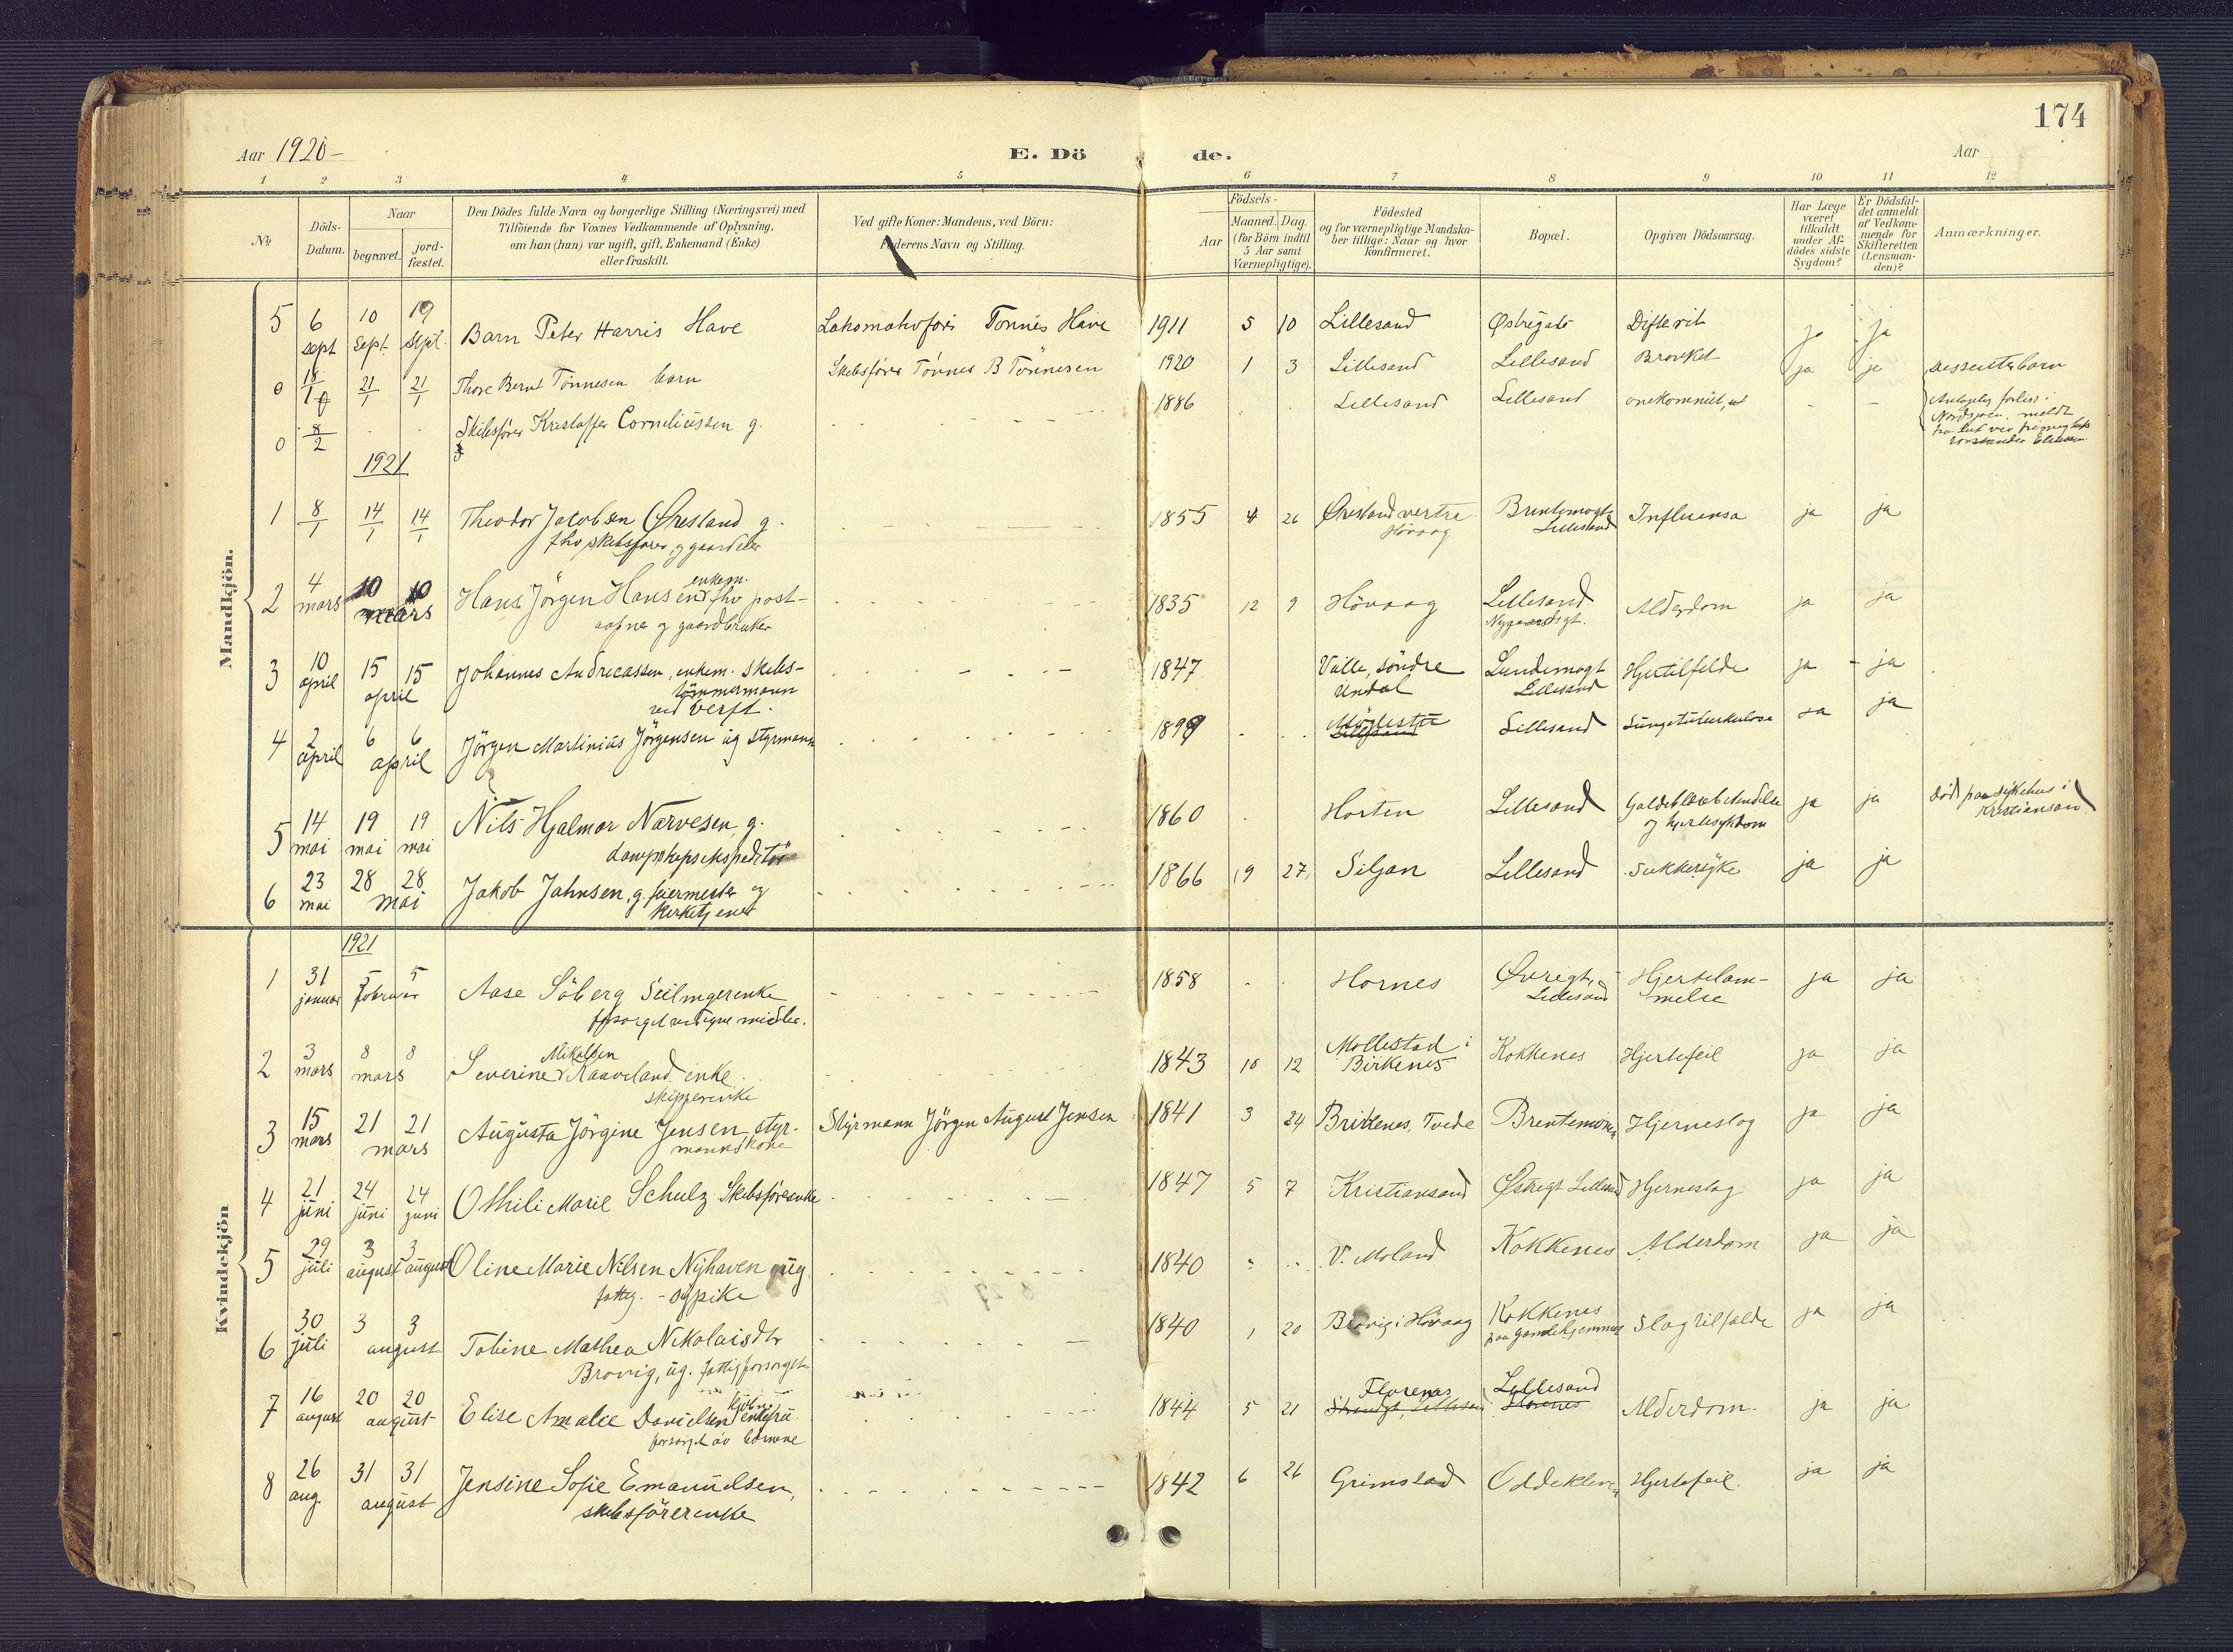 174
Aar 1920-
E. Dö de.
Aar
1 2 3 4 5 6 7 8 9 10 11 12
No
Döds-
Datum.
Naar
begravet.
jord-
fæstet.
Den Dödes fulde Navn og borgerlige Stilling (Næringsvei) med
Tilföiende for Voxnes Vedkommende af Oplysning,
om han (hun) var ugift, gift, Enkemand (Enke)
eller fraskilt.
Ved gifte Koner: Mandens, ved Börn:
Faderens Navn og Stilling.
Födsels-
Aar
Maaned. Dag.
(for Börn indtil
5 Aar samt
Værnepligtige).
Födested
og for værnepligtige Mandska-
ber tillige: Naar og hvor
konfirmeret.
Bopæl.
Opgiven Dödsaarsag.
Har Læge
været
tilkaldt
under Af-
dödes sidste
Sygdom?
Er Dödsfal-
det anmeldt
af Vedkom-
mende for
Skifteretten
(Lensman-
den)?
Anmærkninger.
Mandkjön.
5 6 sept 10 sept. 19 sept. Barn Peter Harris Have Lokomotivfører Tønnes Have 1911 5 10 Lillesand Østregate Difterit ja ja
0 18/1 21/1 21/1 Thore Bernt Tønnesen barn Skibsfører Tønnes B Tønnesen 1920 1 3 Lillesand Lillesand ja ja Dissenterbarn
0 8/2 Skibsfører Kristoffer Corneliussen g. 1886 Lillesand Lillesand - - Antagelig forlist i
Nordsjøen. meldt
1921
1 8/1 14/1 14/1 Theodor Jacobsen Øresland g. 1855 4 26 Øresland vestre Brentemogt. Influensa ja ja
fhv skibsfører og gaardeier Hövaag Lillesand
2 4 mars 10 10 mars Hans Jörgen Hansen enkem. fhv post- 1835 12 9 Hövaag Lillesand Alderdom ja ja
aapner og gaardbruker Nygaardsgt.
3 10 april 15 15 april Johannes Andreassen, enkem. skibs- 1847 Valle, söndre Lundemogt Hjertilfelde ja - ja
tömmermann Undal Lillesand
ved verft.
4 2 april 6 6 april Jörgen Martinius Jörgensen ug styrmann 1899 Møglestu Lillesand Lungetuberkulose ja ja
Lillesand
5 14 mai 19 mai 19 mai Nils Hjalmar Narvesen, g. 1860 Horten Lillesand Galdeblærebetendelse ja ja död paa sykehus i
dampskipsekspeditör og hjertesykdom Kristiansand
6 23 mai 28 28 mai Jakob Jahnsen, g. feiermester og 1866 9 27 Siljan Lillesand Sukkersyke ja ja
kirketjener
Kvindekjön
1921
1 31 januar 5 5 februar Aase Söberg Seilmgerenke 1858 Hornes Øvregt., Hjertelam- ja ja
forsörget ved egne midler. Lillesand melse
2 3 mars 8 8 mars Severine Mikalsen Kaaveland enke 1843 10 12 Mollestad i Kokkenes Hjertefeil ja ja
skipperenke Birkenes
3 15 mars 21 21 mars Augusta Jörgine Jensen styr- Styrmann Jörgen August Jensen 1841 3 24 Tvede Hjerneslag ja ja
mannskone
4 21 juni 24 juni 24 juni Othili Marie Schulz Skibsförerenke 1847 5 7 Kristiansand Østregt Lillesand Hjerneslag ja ja
5 29 juli 3 august 3 august Oline Marie Nilsen Nyhaven ug. 1840 V. Moland Kokkenes Alderdom ja ja
fattig. - sypike
6 30 juli 3 3 august Tobine Mathea Nikolaisdtr 1840 1 20 Brovig i Hövaag Kokkenes Slagtilfælde ja ja
Brovig, ug. fattigforsörget paa gamlehjemmet
7 16 august 20 20 august Elise Amalie Danielsen enkefru 1844 5 21 Florenes Lillesand Alderdom. ja ja
forsörget av börnene Strandgt, Lillesand Florenes
8 26 aug. 31 31 august Jensine Sofie Emanuelsen, 1842 6 26 Grimstad Hjertefeil. ja ja
skibsförerenke